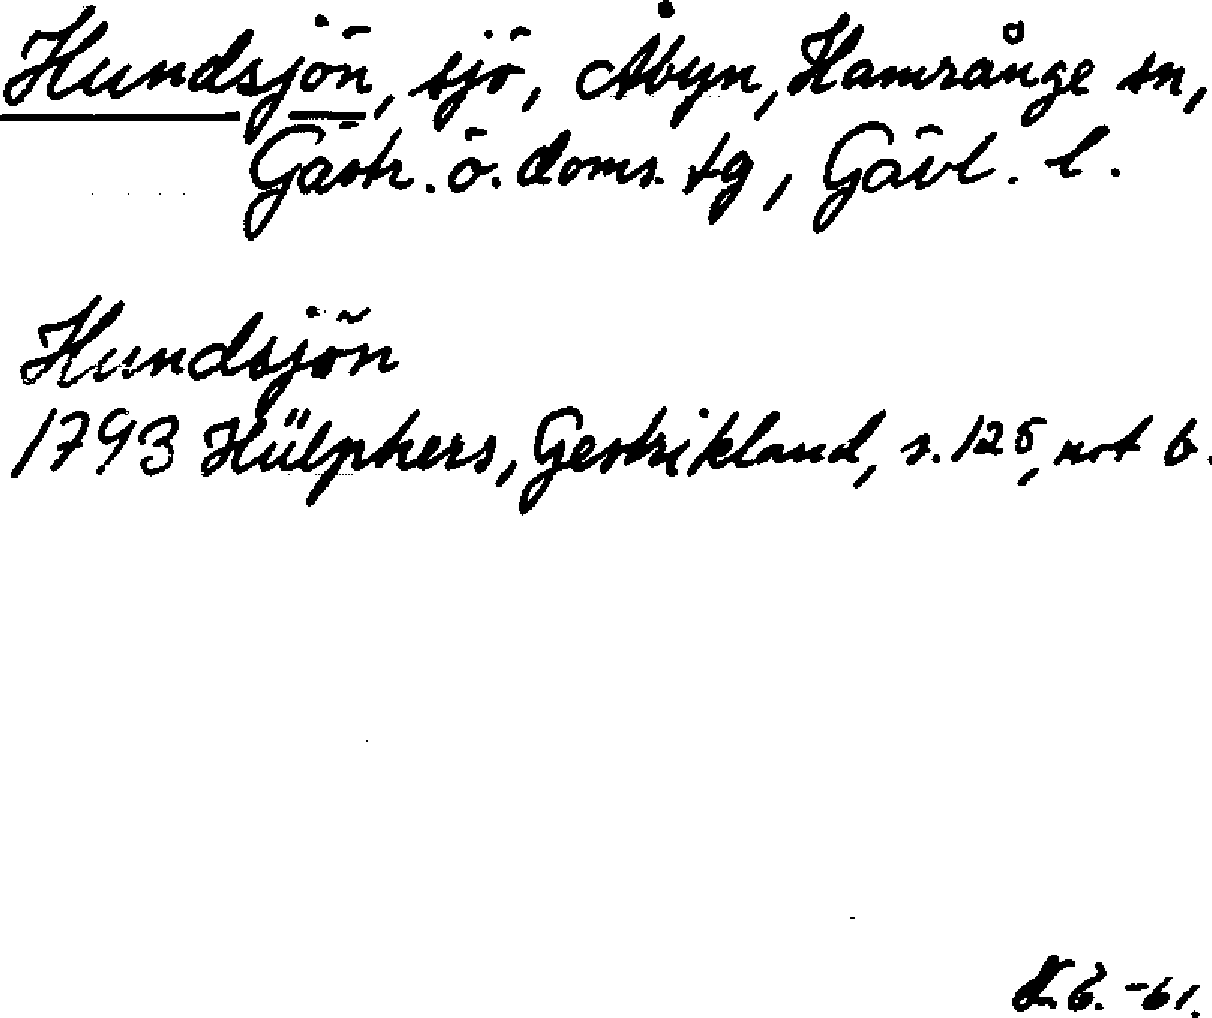 Hundsjön, sjö, Åbyn, Hamrånge sn,
Gästr. ö. doms. tg, Gävl. l.
Hundsjön
1793 Hülphers, Gestrikland, s. 125, not b.
-61.